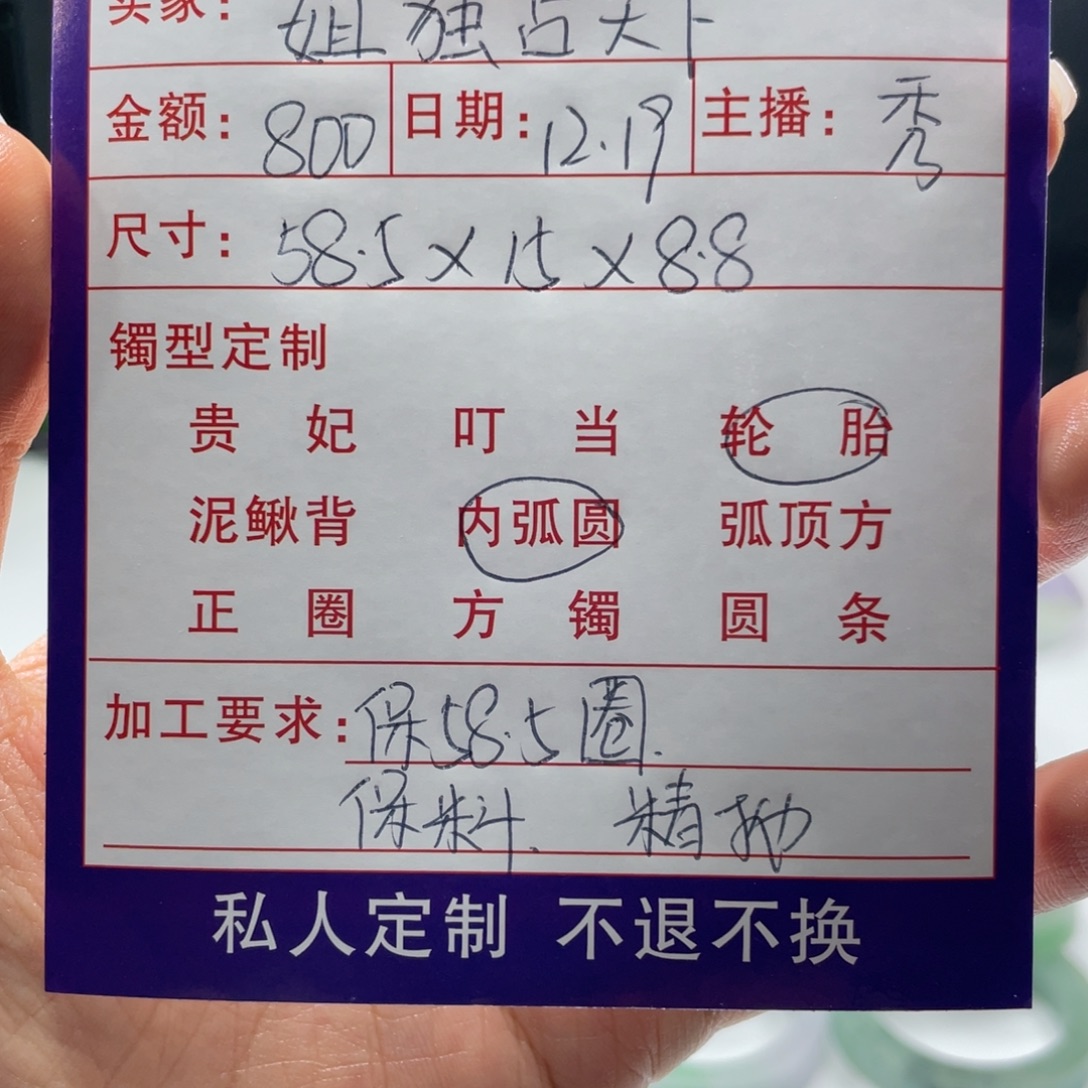 买家：姐独占天下
金额：800 日期：12.19 主播：秀
尺寸：58.5×15×8.8
镯型定制
贵妃 叮当 轮胎
泥鳅背 内弧圆 弧顶方
正圈 方镯 圆条
加工要求：保58.5圈.
保料. 精抛
私人定制 不退不换